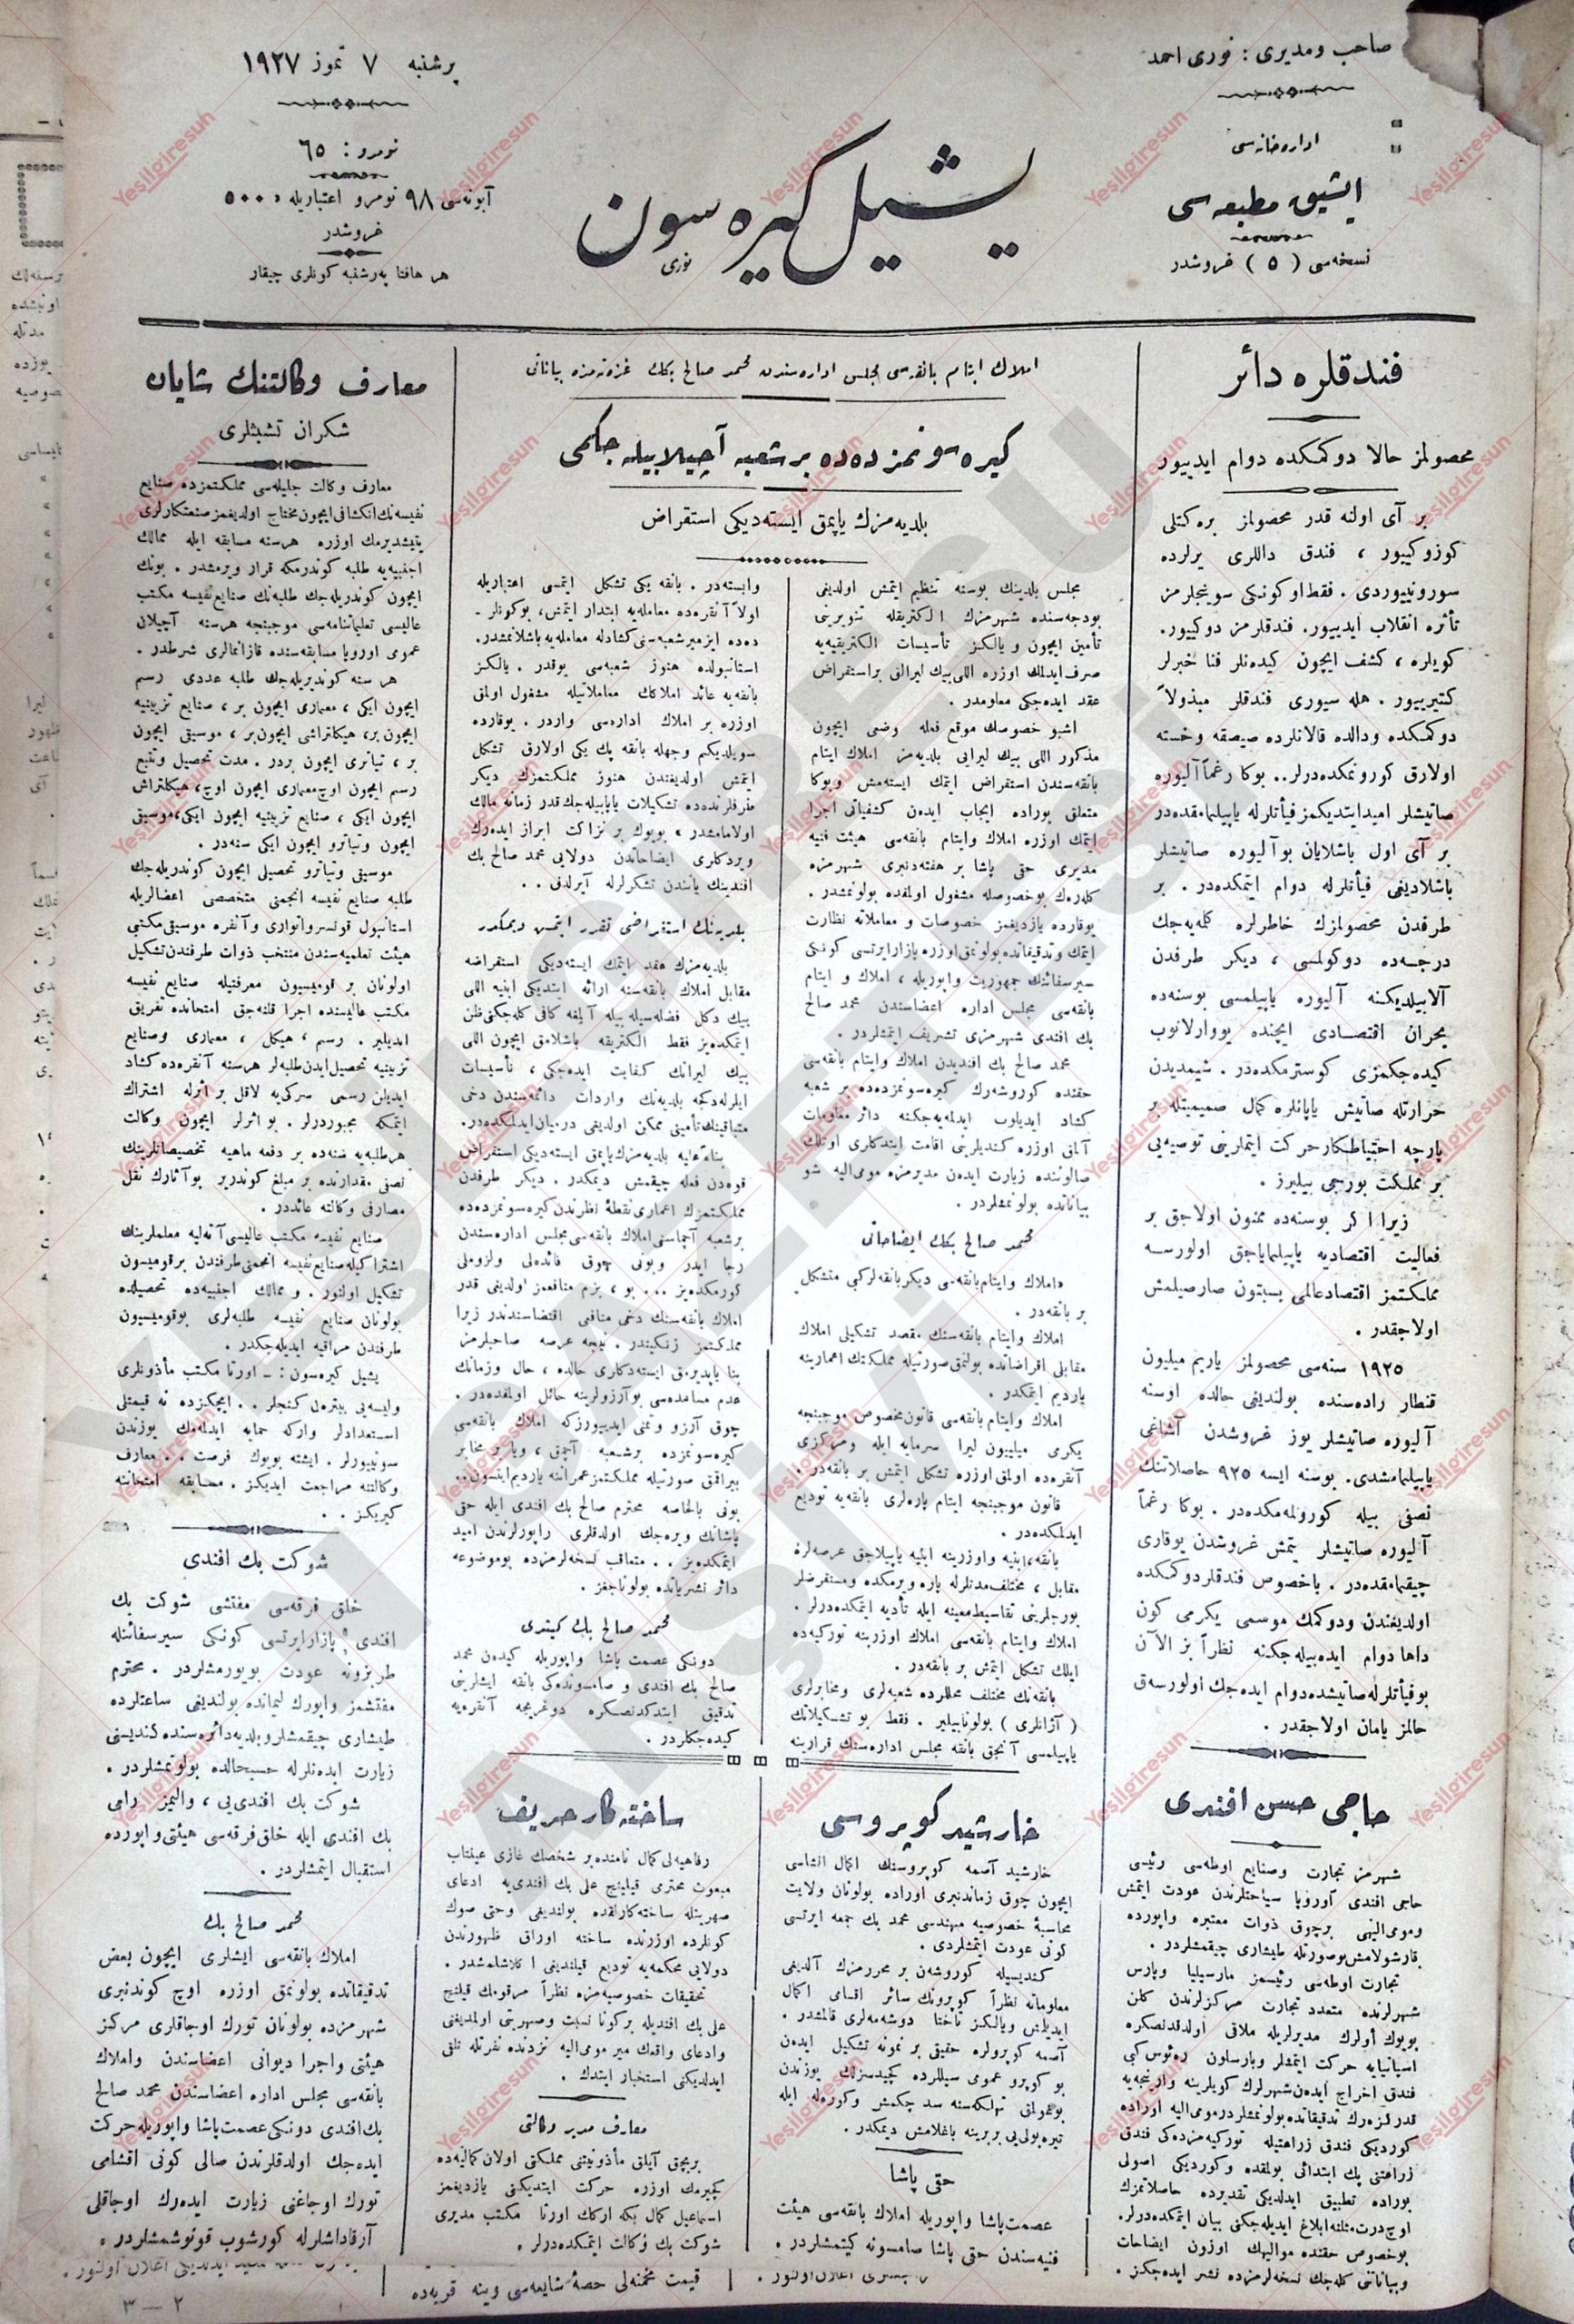 صاحب ومدیری : نوری احمد
اداره‌خانه‌سی
ایشیق مطبعه‌سی
نسخه‌سی ( ٥ ) غروشدر
یشیل کیره‌سون
نوری
پرشنبه ٧ تموز ١٩٢٧
نومرو : ٦٥
آبونه‌سی ٩٨ نومرو اعتباریله ٥٠٠
غروشدر
هر هافتا په‌رشنبه کونلری چیقار
فندقلره دائر
محصولمز حالا دوکمکده دوام ایدییور
بر آی اولنه قدر محصولمز بره‌کتلی
کوزوکییور ، فندق داللری یرلرده
سورونییوردی . فقط اوکونکی سوینجلرمز
تأثره انقلاب ایدییور. فندقلرمز دوکییور.
کویلره ، کشف ایچون کیده‌نلر فنا خبرلر
کتیرییور . هله سیوری فندقلر مبذولاً
دوکمکده ودالده قالانلرده صیصقه وخسته
اولارق کورونمکده‌درلر.. بوکا رغماً آلیوره
صاتیشلر امید ایتدیکمز فیأتلرله یاپیلمامقده‌در
بر آی اول باشلایان بو آلیوره صاتیشلر
باشلادیغی فیأتلرله دوام ایتمکده‌در . بر
طرفدن محصولمزك خاطرلره کلمه‌یه‌جك
درجه‌ده دوکولمسی ، دیکر طرفدن
آلابیلدیکنه آلیوره یاپیلمسی بوسنه‌ده
بحران اقتصادی ایچنده یووارلانوب
کیده‌جکمزی کوسترمکده‌در . شیمدیدن
حرارتله صاتیش یاپانلره کمال صمیمیتله بر
پارچه احتیاطکار حرکت ایتملرینی توصیه‌یی
بر مملکت بورجی بیلیرز .
زیرا اکر بوسنه‌ده ممنون اولاجق بر
فعالیت اقتصادیه یاپیلمایاجق اولورسه
مملکتمز اقتصاد عالمی بسبتون صارصیلمش
اولاجقدر .
١٩٢٥ سنه‌سی محصولمز یاریم میلیون
قنطار راده‌سنده بولندیغی حالده اوسنه
آلیوره صاتیشلر یوز غروشدن آشاغی
یاپیلمامشدی. بوسنه ایسه ٩٢٥ حاصلاتنك
نصفی بیله کورولمه‌مکده‌در . بوکا رغماً
آلیوره صاتیشلر یتمش غروشدن یوقاری
چیقمامقده‌در . باخصوص فندقلر دوکمکده
اولدیغندن ودوکمك موسمی یکرمی کون
داها دوام ایده‌بیله‌جکنه نظراً بز الآن
بوفیأتلرله صاتیشده دوام ایده‌جك اولورسه‌ق
حالمز یامان اولاجقدر .
حاجی حسن افندی
شهرمز تجارت وصنایع اوطه‌سی رئیسی
حاجی افندی آوروپا سیاحتلرندن عودت ایتمش
ومومی‌الیهی برچوق ذوات معتبره واپورده
قارشولامش بوصورتله طیشاری چیقمشلردر .
تجارت اوطه‌سی رئیسمز مارسیلیا وپارس
شهرلرنده متعدد تجارت مرکزلرندن کلن
بویوك آولرك مدیرلریله ملاقی اولدقدنصکره
اسپانیایه حرکت ایتمشلر وبارسلون ره‌ئوس کبی
فندق اخراج ایده‌ن شهرلرك کویلرینه وارینجه‌یه
قدر کزه‌رك تدقیقاتده بولونمشلردر مومی‌الیه اوراده
کوردیکی فندق زراعتیله تورکیه‌مزده‌کی فندق
زراعتنی پك ابتدائی بولمقده وکوردیکی اصولی
بوراده تطبیق ایدلدیکی تقدیرده حاصلاتمزك
اوچ درت مثلنه ابلاغ ایدیله‌جکنی بیان ایتمکده‌درلر.
بوخصوص حقنده موالیهك اوزون ایضاحات
وبیاناتنی کله‌جك نسخه‌لرمزده نشر ایده‌جکز .
املاك ایتام بانقه‌سی مجلس اداره‌سندن محمد صالح بكك غزته‌مزه بیاناتی
کیره‌سونمزده‌ده بر شعبه آچیلابیله‌جکمی
بلدیه‌مزك یاپمق ایسته‌دیکی استقراض
مجلس بلدینك بوسنه تنظیم ایتمش اولدیغی
بودجه‌سنده شهرمزك الکتریقله تنویرینی
تأمین ایچون و یالکز تأسیسات الکتریقیه‌یه
صرف ایدلمك اوزره اللی بیك لیرالق بر استقراض
عقد ایده‌جکی معلومدر .
اشبو خصوصك موقع فعله وضعی ایچون
مذکور اللی بیك لیرایی بلدیه‌مز املاك ایتام
بانقه‌سندن استقراض ایتمك ایسته‌مش وبوکا
متعلق بوراده ایجاب ایدن کشفیاتی اجرا
ایتمك اوزره املاك وایتام بانقه‌سی هیئت فنیه
مدیری حقی پاشا بر هفته‌دنبری شهرمزه
کله‌رك بوخصوصله مشغول اولمقده بولونمشدر .
یوقارده یازدیغمز خصوصات و معاملاته نظارت
ایتمك وتدقیقاتده بولونمق اوزره بازارایرتسی کونکی
سیرسفائنك جمهوریت واپوریله ، املاك و ایتام
بانقه‌سی مجلس اداره اعضاسندن محمد صالح
بك افندی شهرمزی تشریف ایتمشلردر .
محمد صالح بك افندیدن املاك وایتام بانقه‌سی
حقنده کوروشه‌رك کیره‌سونمزده‌ده بر شعبه
کشاد ایدیلوب ایدلمه‌یه‌جکنه دائر معلومات
آلمق اوزره کندیلرینی اقامت ایتدکلری اوتلك
صالوننده زیارت ایدن مدیرمزه مومی‌الیه شو
بیاناتده بولونمشلردر .
محمد صالح بكك ایضاحاتی
«املاك وایتام بانقه‌سی دیکر بانقه‌لرکبی متشکل
بر بانقه‌در .
املاك وایتام بانقه‌سنك مقصد تشکیلی املاك
مقابلی اقراضاتده بولنمق صورتیله مملکتك اعمارینه
یاردیم ایتمکدر .
املاك وایتام بانقه‌سی قانون مخصوص موجبنجه
یکرمی میلیون لیرا سرمایه ایله ومرکزی
آنقره‌ده اولمق اوزره تشکل ایتمش بر بانقه‌در .
قانون موجبنجه ایتام پاره‌لری بانقه‌یه تودیع
ایدلمکده‌در .
بانقه،ابنیه واوزرینه ابنیه یاپیلاجق عرصه‌لره
مقابل ، مختلف مدتلرله پاره ویرمکده ومستقرضلر
بورجلرینی تقاسیط معینه ایله تأدیه ایتمکده‌درلر .
املاك وایتام بانقه‌سی املاك اوزرینه تورکیه‌ده
ایلك تشکل ایتمش بر بانقه‌در .
بانقه‌نك مختلف محللرده شعبه‌لری ومخابرلری
( آژانلری ) بولونابیلیر . فقط بو تشکیلاتك
یاپیلمسی آنجق بانقه مجلس اداره‌سنك قرارینه
وابسته‌در . بانقه یکی تشکل ایتمسی اعتباریله
اولاً آنقره‌ده معامله‌یه ابتدار ایتمش، بوکونلر-
ده‌ده ازمیر شعبه‌سنی کشادله معامله‌یه باشلانمشدر.
استانبولده هنوز شعبه‌سی یوقدر . یالکز
بانقه‌یه عائد املاکك معاملاتیله مشغول اولمق
اوزره بر املاك اداره‌سی واردر . یوقارده
سویلدیکم وجهله بانقه پك یکی اولارق تشکل
ایتمش اولدیغندن هنوز مملکتمزك دیکر
طرفلرنده‌ده تشکیلات یاپابیله‌جك قدر زمانه مالك
اولامامشدر » بویوك بر نزاکت ابراز ایده‌رك
ویردکلری ایضاحاتدن دولایی محمد صالح بك
افندینك یانندن تشکرلرله آیرلدق . .
بلدیه‌نك استقراضی تقرر ایتمش دیمکدر
بلدیه‌مزك عقد ایتمك ایسته‌دیکی استقراضه
مقابل املاك بانقه‌سنه ارائه ایتدیکی ابنیه اللی
بیك دکل فضله‌سیله بیله آیلغه کافی کله‌جکنی ظن
ایتمکده‌یز فقط الکتریقه باشلامق ایچون اللی
بیك لیرانك کفایت ایده‌جکی ، تأسیسات
ایلرله‌دکجه بلدیه‌نك واردات دائمه‌سندن دخی
متباقینك تأمینی ممکن اولدیغی درمیان ایدلمکده‌در.
بناءً علیه بلدیه‌مزك یاپمق ایسته‌دیکی استقراض
قوه‌دن فعله چیقمش دیمکدر . دیکر طرفدن
مملکتمزك اعماری نقطهٔ نظرندن کیره‌سونمزده‌ده
برشعبه آچماسنی املاك بانقه‌سی مجلس اداره‌سندن
رجا ایدر وبونی چوق فائده‌لی ولزوملی
کورمکده‌یز ... بو ، بزم منافعمز اولدیغی قدر
املاك بانقه‌سنك دخی منافعی اقتضاسندندر زیرا
مملکتمز زنکیندر . نیجه عرصه صاحبلرمز
بنا یاپدیرمق ایسته‌دکلری حالده ، حال وزمانك
عدم مساعده‌سی بو آرزولرینه حائل اولمقده‌در .
چوق آرزو وتمنی ایدییورزکه املاك بانقه‌سی
کیره‌سونمزده برشعبه آچمق ، ویا بر مخابر
بیراقمق صورتیله مملکتمز عمراننه یاردیم ایتسون..
بونی بالخاصه محترم صالح بك افندی ایله حقی
پاشانك ویره‌جك اولدقلری راپورلرندن امید
ایتمکده‌یز . . متعاقب نسخه‌لرمزده بوموضوعه
دائر نشریاتده بولوناجغز .
محمد صالح بك کیتدی
دونکی عصمت پاشا واپوریله کیدن محمد
صالح بك افندی و صامسونده‌کی بانقه ایشلرینی
تدقیق ایتدکدنصکره دوغریجه آنقره‌یه
کیده‌جکلردر .
خارشید کوپروسی
خارشید آصمه کوپروسنك اکمال انشاسی
ایچون چوق زماندنبری اوراده بولونان ولایت
محاسبهٔ خصوصیه مهندسی محمد بك جمعه ایرتسی
کونی عودت ایتمشلردی .
کندیسیله کوروشه‌ن بر محررمزك آلدیغی
معلوماته نظراً کوپرونك سائر اقسامی اکمال
ایدیلمش ویالکز تاختا دوشه‌مه‌لری قالمشدر .
آصمه کوپرولره حقیقی بر نمونه تشکیل ایدن
بو کوپرو عمومی سیللرده کچیدسزلك یوزندن
بوغولمق تهلکه‌سنه سد چکمش وکوره‌له ایله
تیره‌بولی‌یی بربرینه باغلامش دیمکدر .
حقی پاشا
عصمت پاشا واپوریله املاك بانقه‌سی هیئت
فنیه‌سندن حقی پاشا صامسونه کیتمشلردر .
ساخته‌کار حریف
رفاهیه‌لی کمال نامنده بر شخصك غازی عینتاب
مبعوث محترمی قیلینج علی بك افندی‌یه ادعای
صهریتله ساخته‌کارلقده بولندیغی وحتی صوك
کونلرده اوزرنده ساخته اوراق ظهورندن
دولایی محکمه‌یه تودیع قیلندیغی اکلاشلمشدر .
تحقیقات خصوصیه‌مزه نظراً مرقومك قیلنج
علی بك افندیله برکونا نسبت وصهریتی اولمدیغی
وادعای واقعك میر مومی‌الیه نزدنده نفرتله تلقی
ایدلدیکنی استخبار ایتدك .
معارف مدیر وکالتی
بریچق آیلق مأذونیتنی مملکتی اولان کمالیه‌ده
کچیرمك اوزره حرکت ایتدیکنی یازدیغمز
اسماعیل کمال بکه ارکك اورتا مکتب مدیری
شوکت بك وکالت ایتمکده‌درلر .
معارف وکالتنك شایان
شکران تشبثلری
معارف وکالت جلیله‌سی مملکتمزده صنایع
نفیسه‌نك انکشافی ایچون محتاج اولدیغمز صنعتکارلری
یتیشدیرمك اوزره هرسنه مسابقه ایله ممالك
اجنبیه‌یه طلبه کوندرمکه قرار ویرمشدر . بونك
ایچون کوندریله‌جك طلبه‌نك صنایع نفیسه مکتب
عالیسی تعلیماتنامه‌سی موجبنجه هرسنه آچیلان
عمومی اوروپا مسابقه‌سنده قازانمالری شرطدر .
هر سنه کوندیریله‌جك طلبه عددی رسم
ایچون ایکی ، معماری ایچون بر ، صنایع تزیینیه
ایچون بر، هیکلتراشی ایچون بر ، موسیقی ایچون
بر ، تیاتری ایچون بردر . مدت تحصیل وتتبع
رسم ایچون اوچ معماری ایچون اوچ، هیکلتراش
ایچون ایکی ، صنایع تزیینیه ایچون ایکی،موسیقی
ایچون وتیاترو ایچون ایکی سنه‌در .
موسیقی وتیاترو تحصیلی ایچون کوندریله‌جك
طلبه صنایع نفیسه انجمنی متخصص اعضالریله
استانبول قونسرواتواری وآنقره موسیقی مکتبی
هیئت تعلمیه‌سندن منتخب ذوات طرفندن تشکیل
اولونان بر قومیسیون معرفتیله صنایع نفیسه
مکتب عالیسنده اجرا قلنه‌جق امتحانده تفریق
ایدیلیر . رسم ، هیکل ، معماری وصنایع
تزیینیه تحصیل ایدن طلبه‌لر هرسنه آنقره‌ده کشاد
ایدیلن رسمی سرکی‌یه لااقل بر اثرله اشتراك
ایتمکه مجبوردرلر . بو اثرلر ایچون وکالت
هر طلبه‌یه سنه‌ده بر دفعه ماهیه تخصیصاتلرینك
نصفی مقدارنده بر مبلغ کوندریر بو آثارك نقل
مصارفی وکالته عائددر .
صنایع نفیسه مکتب عالیسی آته‌لیه معلملرینك
اشتراکیله صنایع نفیسه انجمنی طرفندن بر قومیسون
تشکیل اولنور . و ممالك اجنبیه‌ده تحصیلده
بولونان صنایع نفیسه طلبه‌لری بوقومیسیون
طرفندن مراقبه ایدیله‌جکدر .
یشیل کیره‌سون : - اورتا مکتب مأذونلری
ولیسه‌یی بیتره‌ن کنجلر . . ایچکزده نه قیمتلی
استعدادلر وارکه حمایه ایدلمه‌مك یوزندن
سونییورلر . ایشته بویوك فرصت . . معارف
وکالتنه مراجعت ایدیکز . مسابقه امتحاننه
کیریکز . .
شوکت بك افندی
خلق فرقه‌سی مفتشی شوکت بك
افندی ، پازارایرتسی کونکی سیرسفائنله
طربزونه عودت بویورمشلردر . محترم
مفتشمز واپورك لیمانده بولندیغی ساعتلرده
طیشاری چیقمشلر وبلدیه دائره‌سنده کندیسنی
زیارت ایده‌نلرله حسبحالده بولونمشلردر .
شوکت بك افندی‌یی ، والیمز رامی
بك افندی ایله خلق فرقه‌سی هیئتی واپورده
استقبال ایتمشلردر .
محمد صالح بك
املاك بانقه‌سی ایشلری ایچون بعض
تدقیقاتده بولونمق اوزره اوچ کوندنبری
شهرمزده بولونان تورك اوجاقلری مرکز
هیئتی واجرا دیوانی اعضاسندن واملاك
بانقه‌سی مجلس اداره اعضاسندن محمد صالح
بك افندی دونکی عصمت پاشا واپوریله حرکت
ایده‌جك اولدقلرندن صالی کونی اقشامی
تورك اوجاغنی زیارت ایده‌رك اوجاقلی
آرقاداشلرله کورشوب قونوشمشلردر .
قیمت مخمنه‌لی حصهٔ شایعه‌سی وینه قریه‌ده
٢ — ٣
YesilGiresun